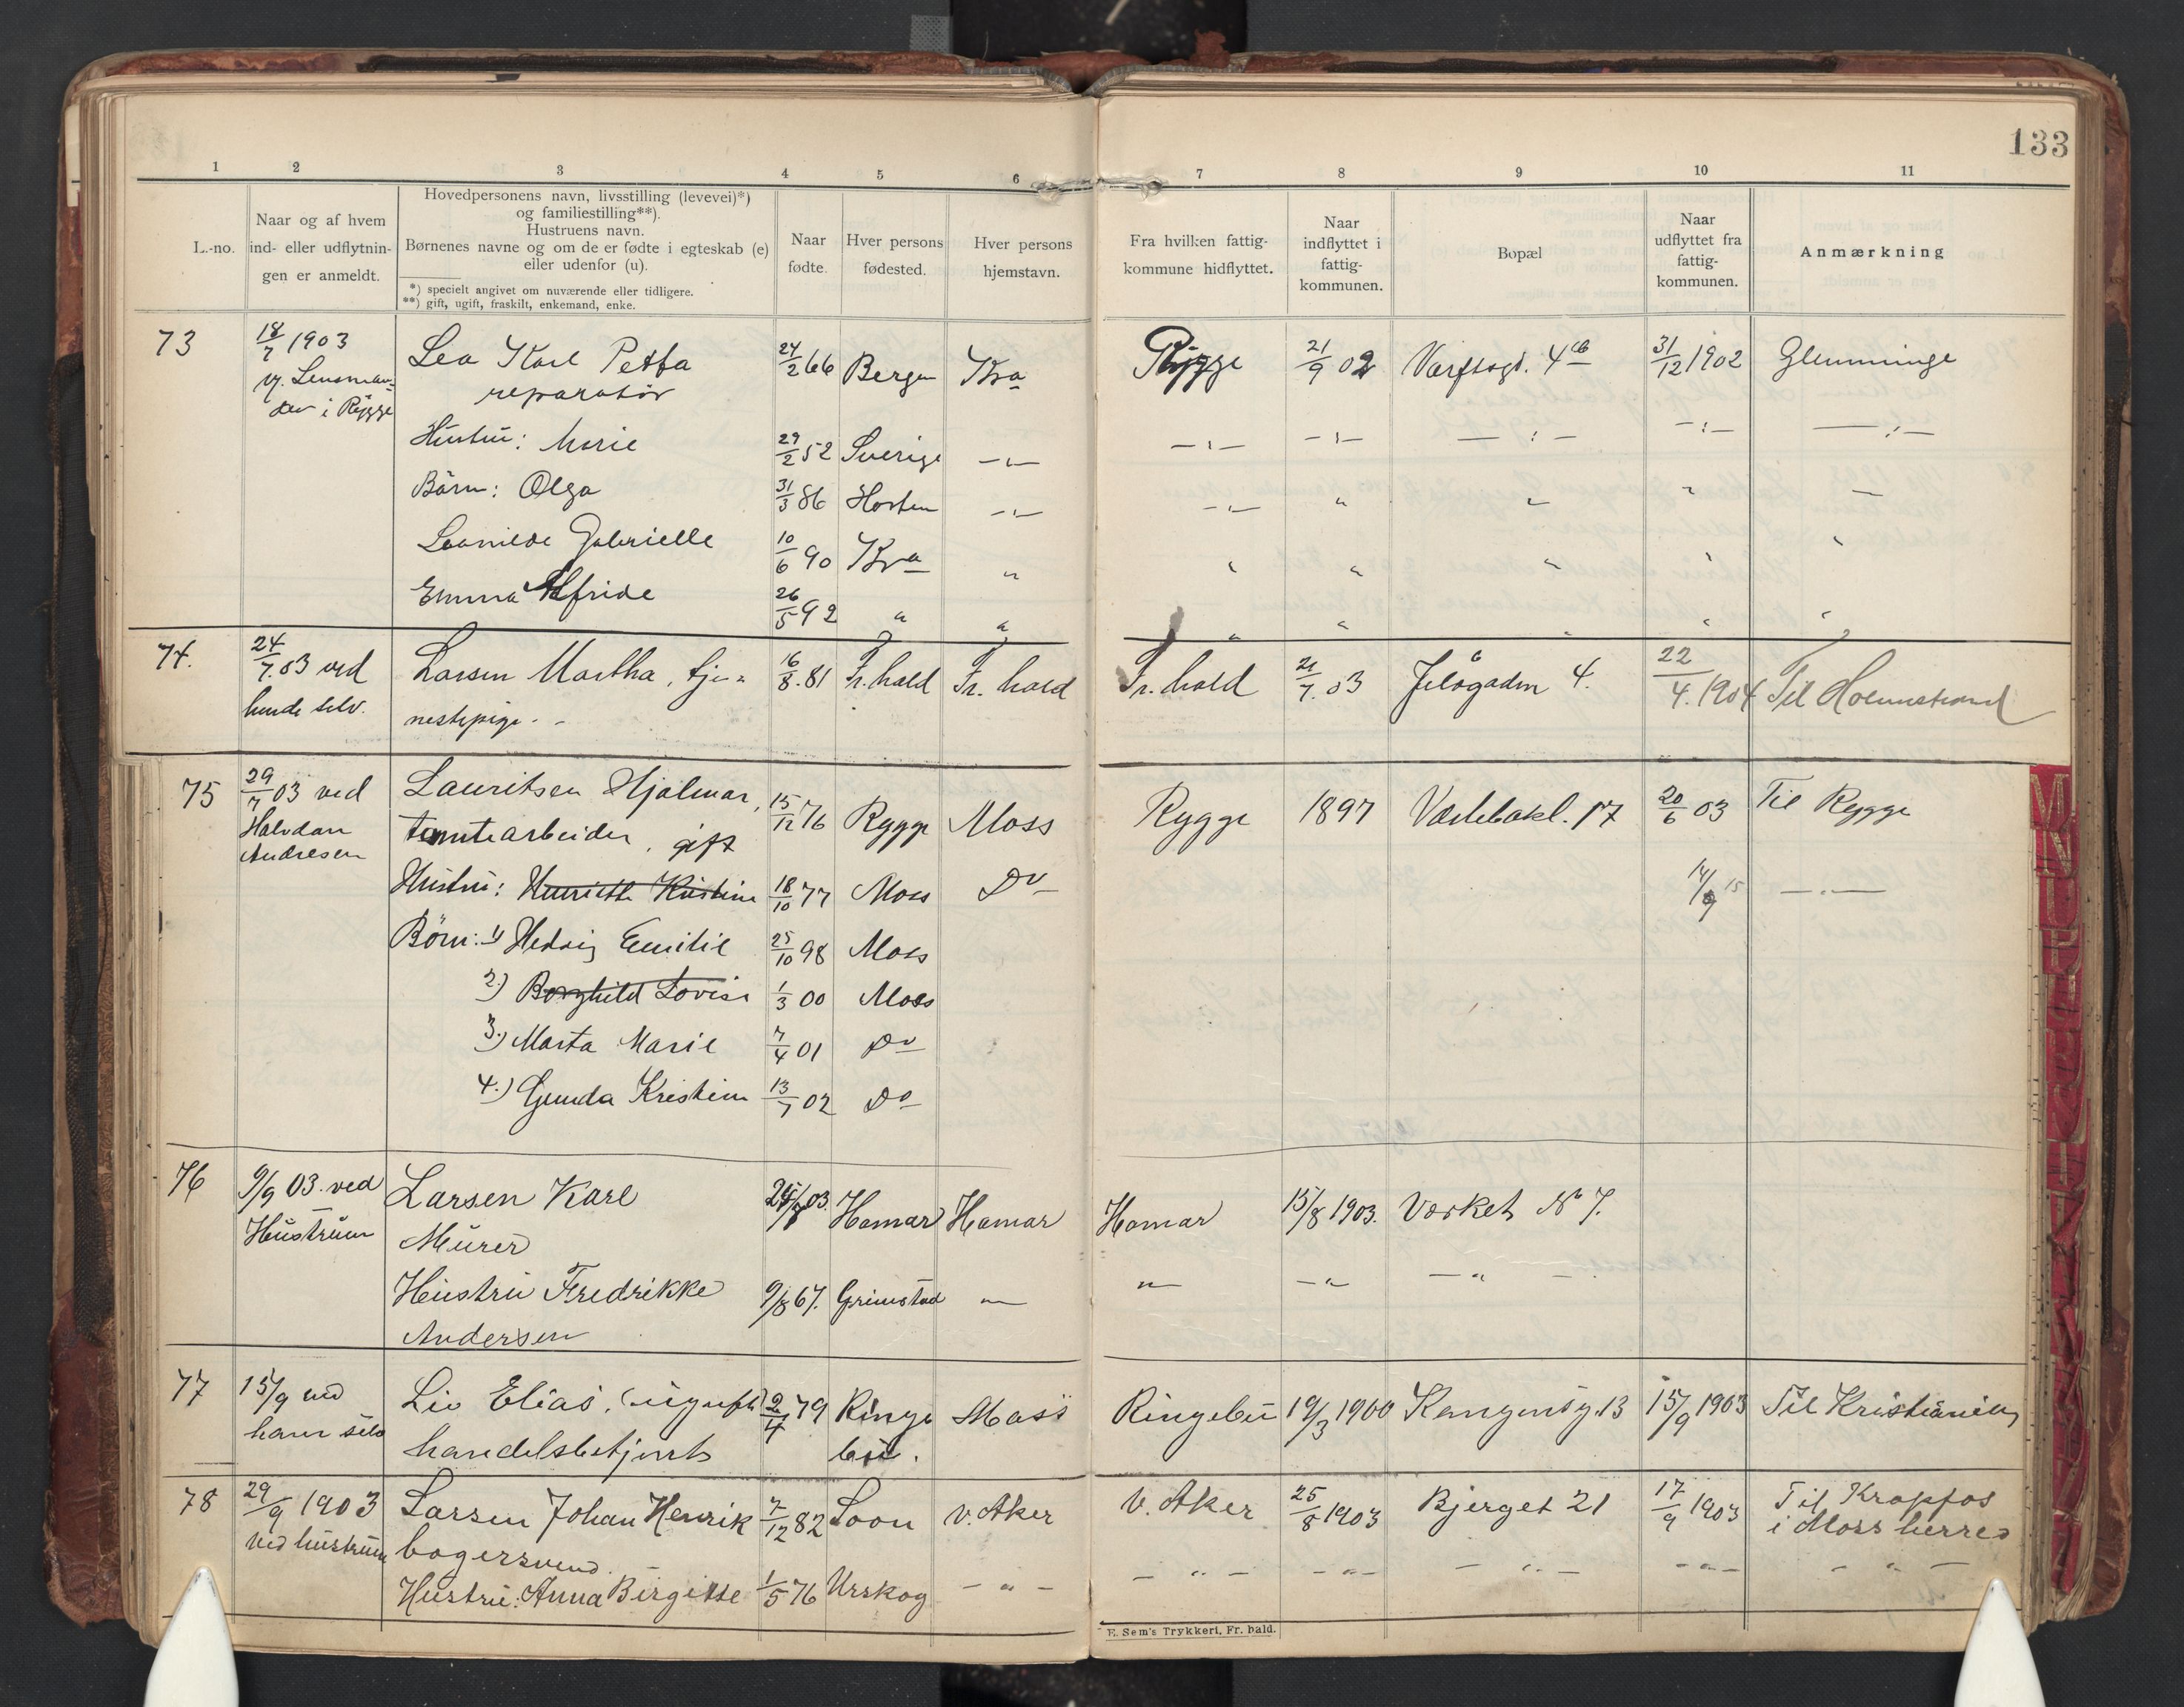 133
1 2 3 4 5 6 7 8 9 10 11
L.-no.
Naar og af hvem
ind- eller udflytnin-
gen er anmeldt.
Hovedpersonens navn, livsstilling (levevei)*)
og familiestilling**).
Hustruens navn.
Børnenes navne og om de er fødte i egteskab (e)
eller udenfor (u).
*) specielt angivet om nuværende eller tidligere.
**) gift, ugift, fraskilt, enkemand, enke.
Naar
fødte.
Hver persons
fødested.
Hver persons
hjemstavn.
Fra hvilken fattig-
kommune hidflyttet.
Naar
indflyttet i
fattig-
kommunen.
Bopæl
Naar
udflyttet fra
fattig-
kommunen.
Anmærkning
73 18/7 1903 Lea Karl 24/2 66 Bergen Kra Rygge 21/9 02 Værftsgt. 4 31/12 1902 Glemminge
Lensman-
den i Rygge
reparatør
Hustru: Marie 29/2 52 Sverige
Børn: Olga 31/3 86 Horten
Leonilde Gabrielle 10/6 90 Kra "
Emma Alfride 26/5 92 " "
74. 24/7. 03 ved Larsen Martha, tje- 16/8. 81 Fr.hald Fr. hald Fr. hald 21/7. 03 Jeløgaden 4. 22/4. 1904 Til Holmestrand
hende selv. nestepige
75 29/7 03 ved Lauritsen Hjalmar, 15/12 76 Rygge Moss Rygge 1897 17 20/6 03 Til Rygge
Halvdan tomtearbeider, gift
Andresen
Hustru: Henriette Kristine 18/10 77 Moss Do 14/9 15 — " —
Børn: 1) Hedvig Emilie 25/10 98 Moss
2) Borghild Lovise 1/3 00 Moss
3.) Marta Marie 7/4 01 Do
4.) Gunda Kristine 13/7 02 Do
76 9/9 03. ved Larsen Karl Hamar Hamar Hamar 15/8 1903. Værket No 7.
Hustruen Murer
Hustru Fredrikke 9/8 67. Grimstad — " — " — " — " —
Andersen
77 15/9 ved Lie Elias, (ugift) 2/4 79 Ringe Moss Ringebu 19/3 1900 Kongensg. 13 15/9 1903 Til Kristiania
ham selv handelsbetjent bu.
78 29/9 1903 Larsen Johan Henrik 7/12 82 Soon V. Aker V. Aker 25/8 1903 Bjerget 21 17/9 1903 Til Krapfos
ved hustruen bagersvend. i Moss herred
Hustru: Anna Birgitte 1/5 76 Urskog — " — — " — — " — — " — — " — — " —
E. Sem's Trykkeri, Fr. hald.